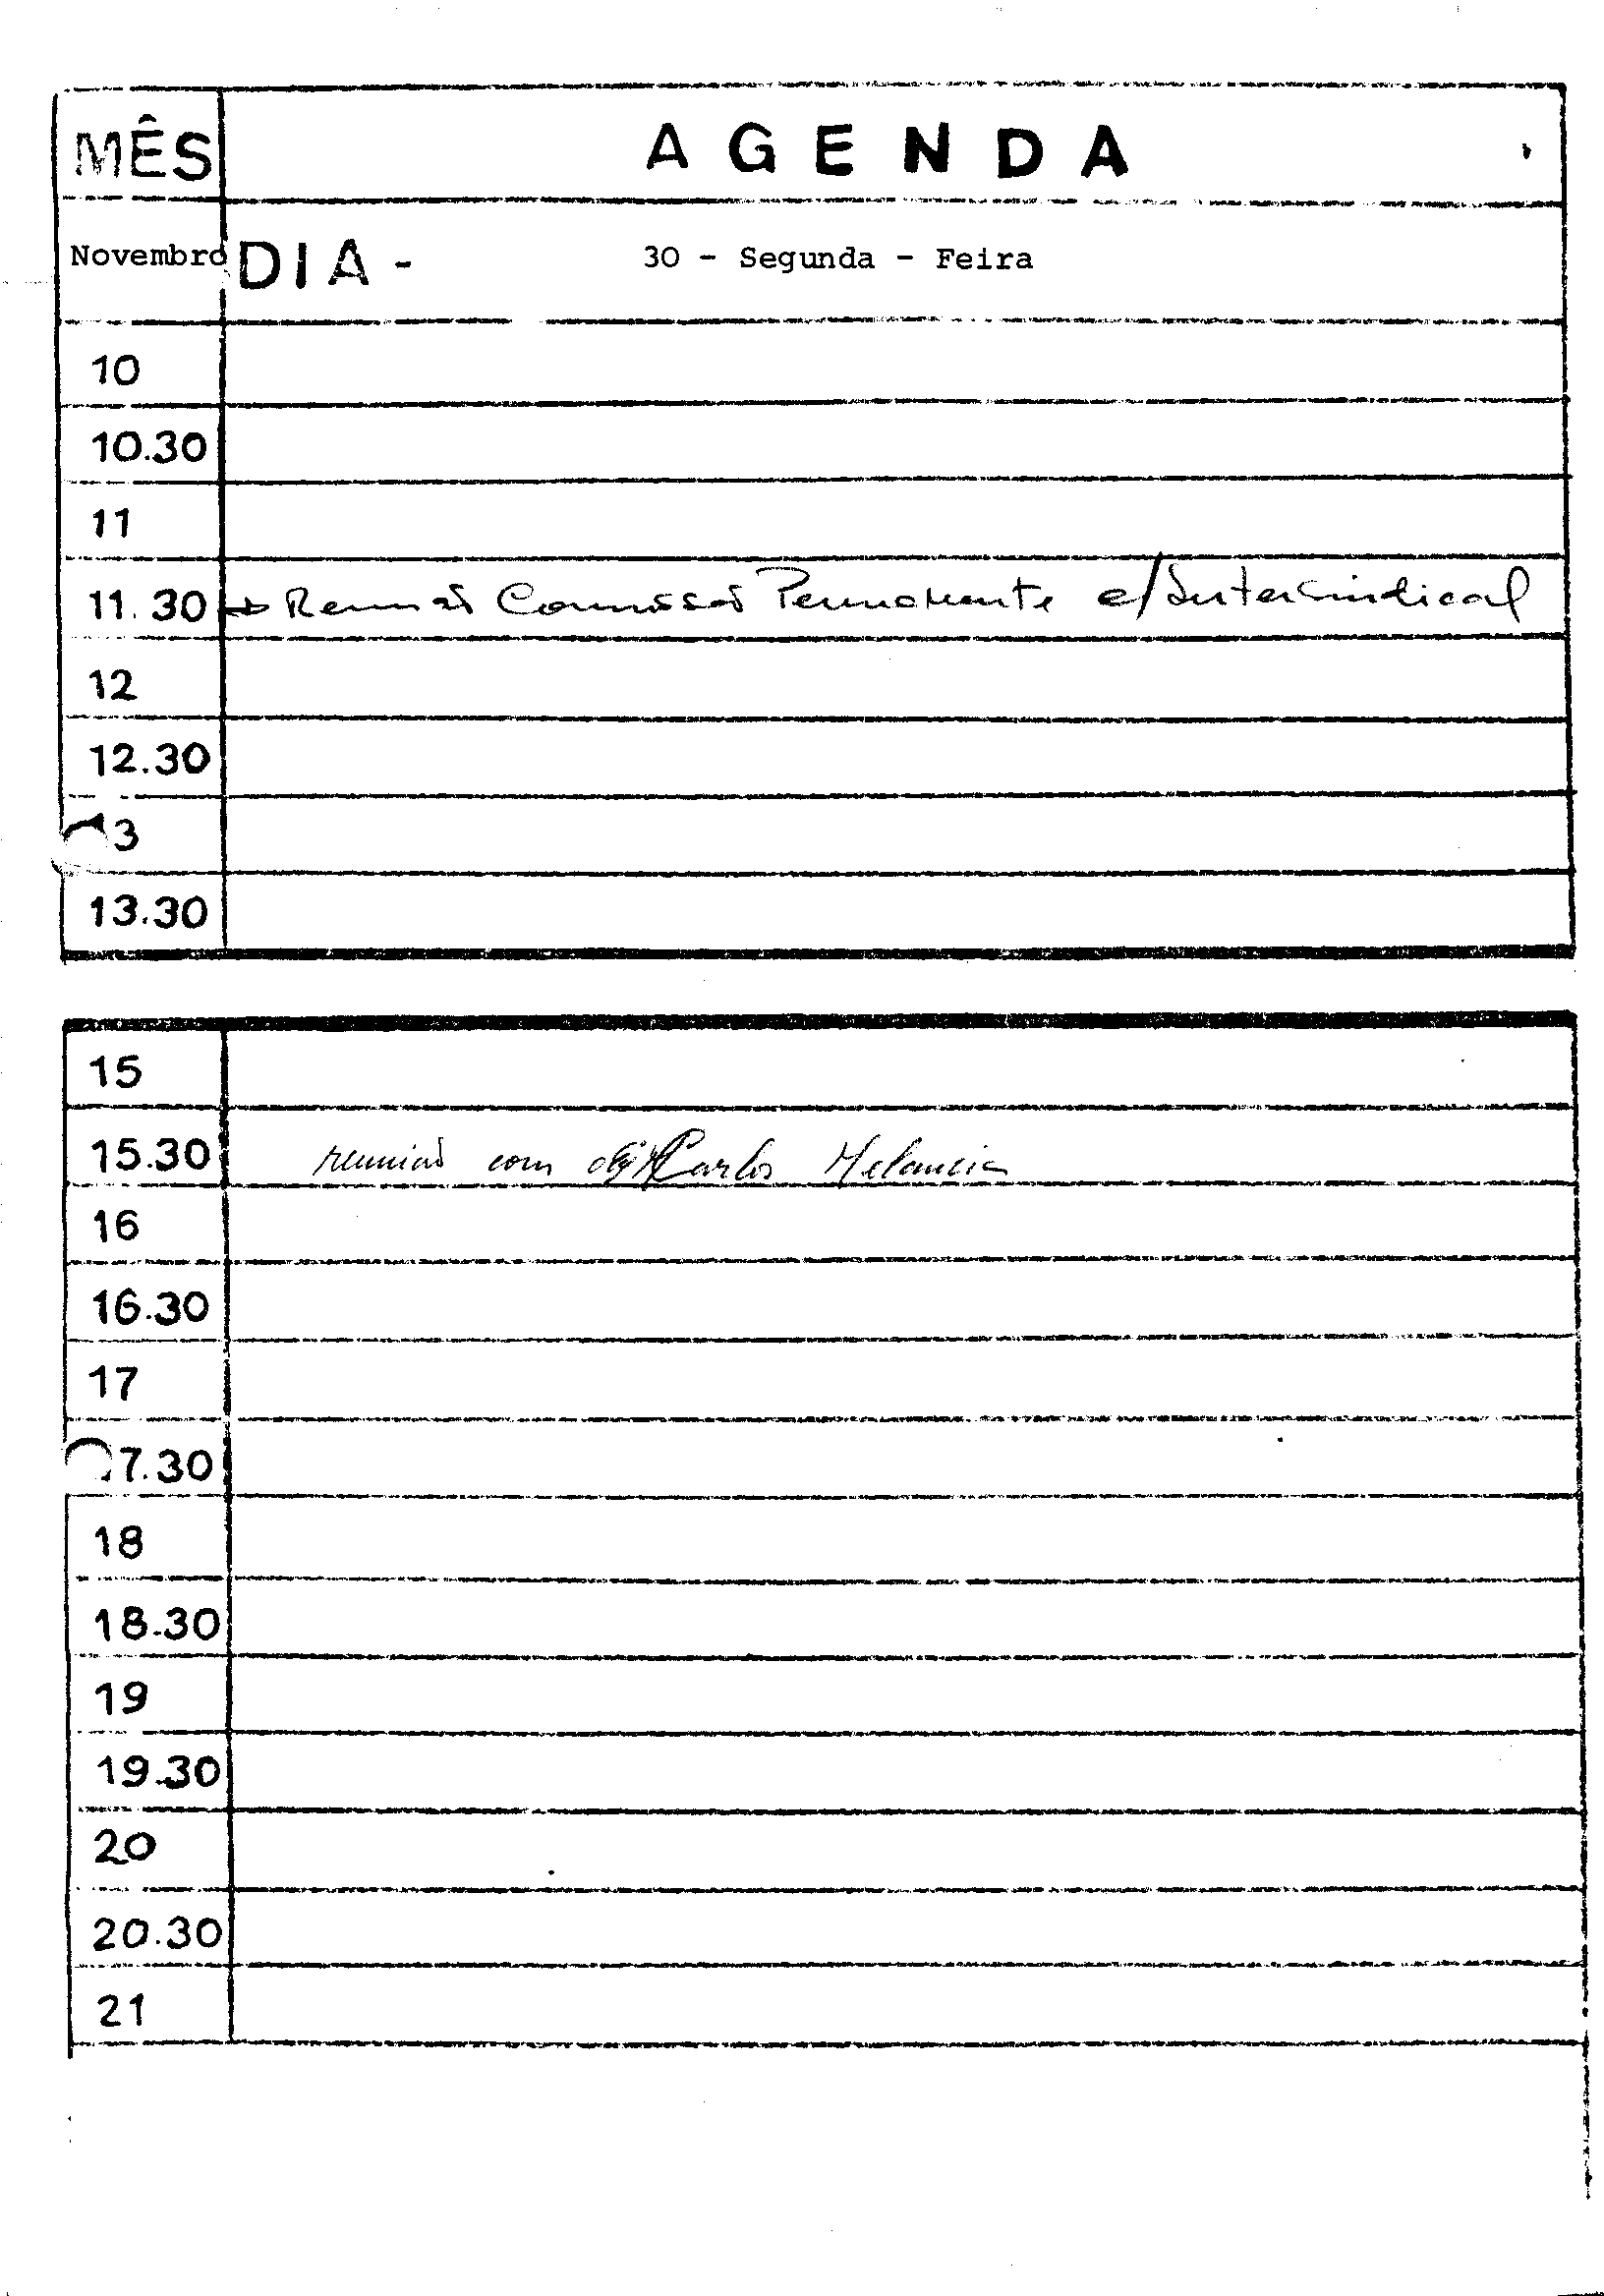 MÊS AGENDA
Novembro DIA - 30 - Segunda - Feira
10
10.30
11
11.30 → Reunião Comissão Permanente c/Intersindical
12
12.30
13
13.30
15
15.30 reunião com Carlos Melancia
16
16.30
17
17.30
18
18.30
19
19.30
20
20.30
21